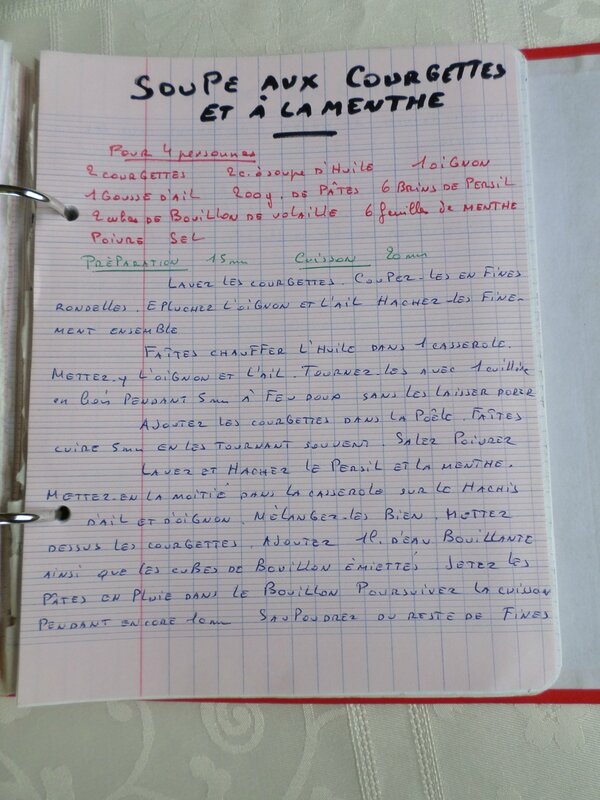 SOUPE AUX COURGETTES
ET À LA MENTHE
POUR 4 personnes
2 COURGETTES 2 c. à soupe D'HUILE 1 OIGNON
1 GOUSSE D'AIL 200g. DE PÂTES 6 BRINS DE PERSIL
2 cubes DE BOUILLON DE VOLAILLE 6 feuilles de MENTHE
POIVRE SEL
PRÉPARATION 15 mn CUISSON 20 mn
LAVER LES COURGETTES. COUPEZ-LES EN FINES
RONDELLES. EPLUCHER L'OIGNON ET L'AIL HACHEZ-LES FINE-
MENT ENSEMBLE
FAÎTES CHAUFFER L'HUILE DANS 1 CASSEROLE.
METTEZ-Y L'OIGNON ET L'AIL. TOURNEZ-LES AVEC 1 cuillère
en bois PENDANT 5mn À FEU DOUX SANS LES LAISSER DORER
AJOUTEZ LES COURGETTES DANS LA POÊLE. FAÎTES
CUIRE 5mn EN LES TOURNANT SOUVENT. SALEZ POIVREZ
LAVER ET HACHER LE PERSIL ET LA MENTHE.
METTEZ-EN LA MOITIÉ DANS LA CASSEROLE SUR LE HACHIS
D'AIL ET D'OIGNON. MÉLANGEZ-LES BIEN. METTEZ
DESSUS LES COURGETTES. AJOUTEZ 1l. D'EAU BOUILLANTE
AINSI QUE LES CUBES DE BOUILLON ÉMIETTÉS JETEZ LES
PÂTES EN PLUIE DANS LE BOUILLON POURSUIVEZ LA CUISSON
PENDANT ENCORE 10mn SAUPOUDREZ DU RESTE DE FINES